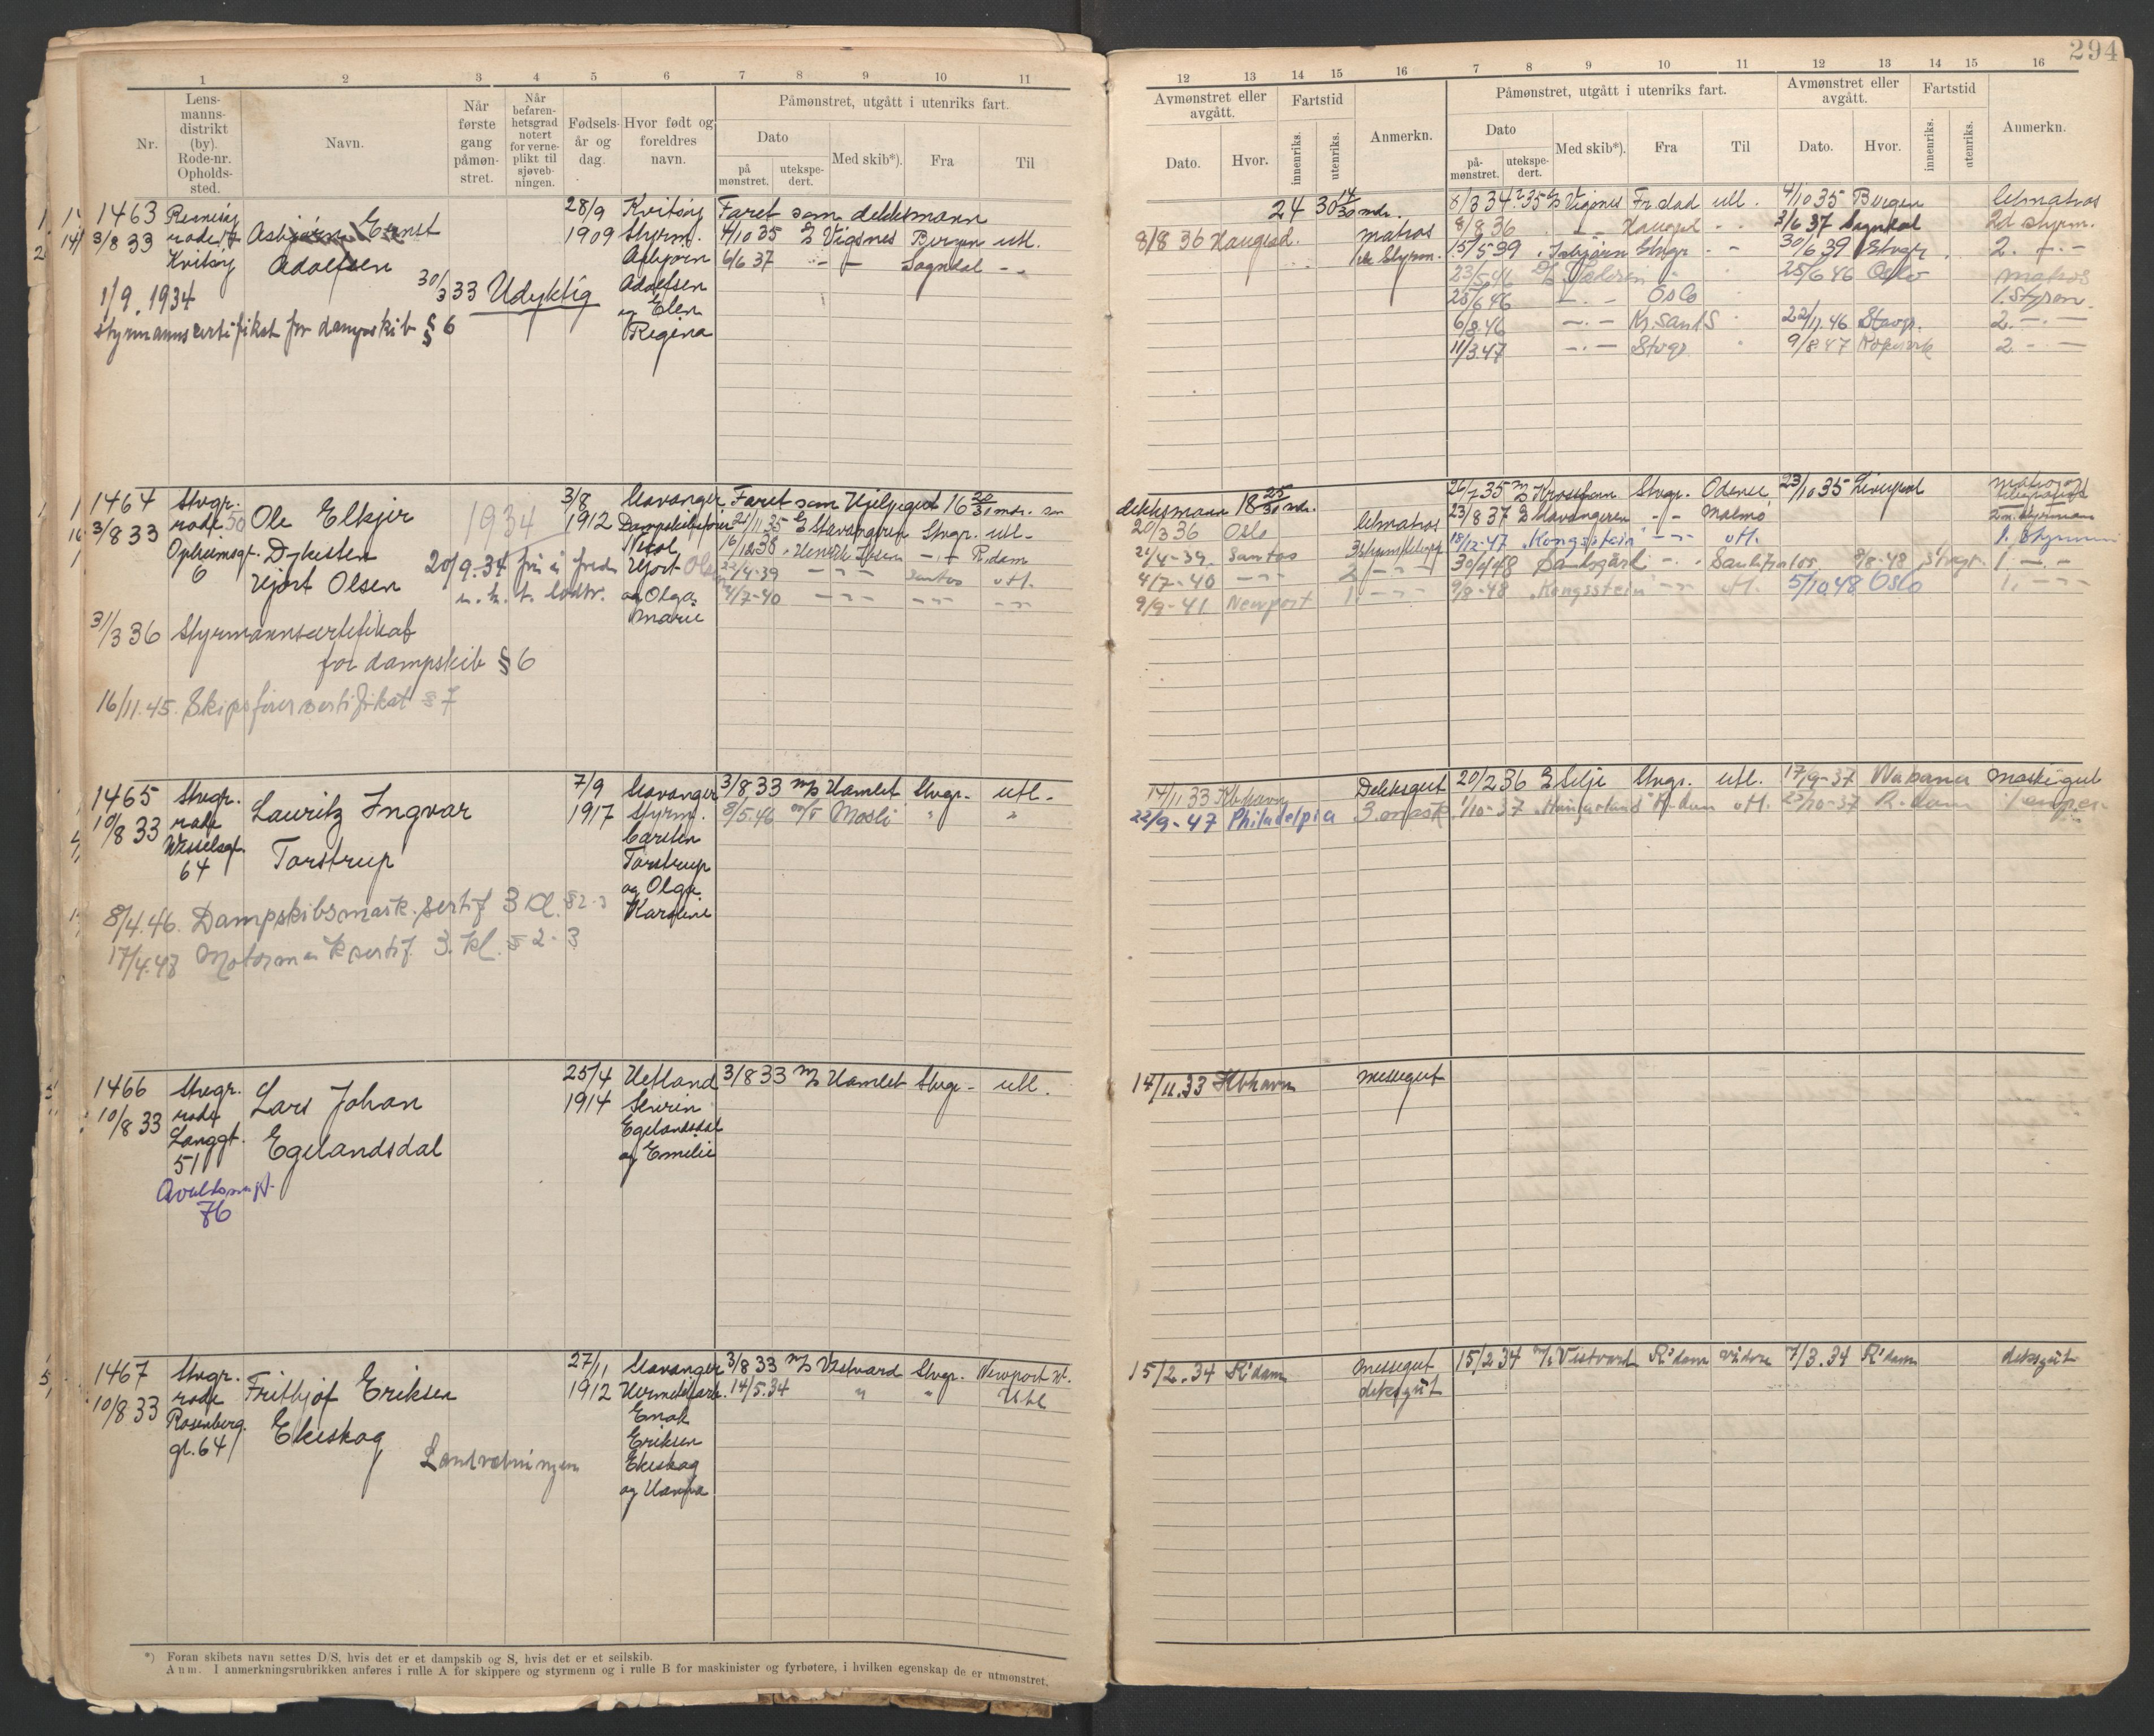 294
1 2 3 4 5 6 7 8 9 10 11
Nr.
Lens-
manns-
distrikt
(by).
Rode-nr.
Opholds-
sted.
Navn.
Når
første
gang
påmøn-
stret.
Når
befaren-
hetsgrad
notert
for verne-
plikt til
sjøveb-
ningen.
Fødsels-
år og
dag.
Hvor født og
foreldres
navn.
Påmønstret, utgått i utenriks fart.
Dato
på
mønstret.
utekspe-
dert.
Med skib*).
Fra
Til
12 13 14 15 16 7 8 9 10 11 12 13 14 15 16
Avmønstret eller
avgått.
Dato.
Hvor.
Fartstid
innenriks.
utenriks.
Anmerkn.
Påmønstret, utgått i utenriks fart.
Dato
på-
mønstret.
utekspe-
dert.
Med skib*).
Fra
Til
Avmønstret eller
avgått.
Dato.
Hvor.
Fartstid
innenriks.
utenriks.
Anmerkn.
1463
3/8 33
rode
Kvitsøy
Asbjørn Ernst
Adolfsen
1/9. 1934
Styrmannssertifikat for dampskib § 6
30/3 33 Udyktig
28/9
1909
Kvitsøy
Styrm.
Asbjørn
Adolfsen
og Elen
Regina
Faret som dekksmann
4/10 35 Vigsnes Bergen utl.
6/6 37 - - Sogndal - -
24 30 14/30 mdr.
8/8 36 Haugesd. matros
Styrm.
Vigsnes Fr.stad utl. 4/10 35 Bergen letmatros
8/8 36 - - Haugesd - - 3/6 37 Sogndal 2d styrm.
15/5 39 Asbjørn Stvgr - - 30/6 39 Stvgr 2. - -
25/6 46 Oslo matros
25/6 46 - - Oslo 1. Styrm.
6/8 46 - - Kr.sand S 22/11.46 Stavgr. 2. - -
11/3.47 - - Stvgr 9/8.47 Kopervik 2. - -
1464
3/8 33
Stvgr.
rode 50
Opheimsgt.
6
Ole Elkjer
Dykesten
Hjort Olsen
1934
20/9.34 fri i freds
31/3 36 Styrmannssertifikat
for dampskib § 6
16/11.45. Skipsførersertifikat § 7
3/8
1912
Stavanger
Dampskibsfører
Nicol
Hjort Olsen
og Olga
Marie
Faret som Hjelpegut 16 20/30 mdr. som
21/11 35 Stavangeren Stvgr. utl.
16/12 38 Henrik Ibsen - - R.dam
22/4-39 - - - Santos utl.
4/7-40 - - - - - - -
dekksmann 18 25/30 mdr.
20/3 36 Oslo letmatros
21/4-39. Santos
4/7-40 - - - 2 - - -
9/9-41 Newport 1. - - -
26/7 35 Krossham Stvgr. Odense 23/10 35 Liverpool matros
23/8 37 Stavangeren - - Malmø
18/12-47 "Kongsstein" - - utl. 1. Styrmann
8/8-48 Stvgr. 1 - -
9/8-48 "Kongsstein" - - utl. 5/10 48 Oslo 1. - - -
1465
10/8 33
Stvgr.
rode
Wesselsgt.
64
Lauritz Ingvar
Torstrup
8/4.46. Dampskibsmask.sertif 3 kl. § 2-3
17/4.47 Motormask.sertif. 3. kl. § 2-3
7/9
1917
Stavanger
Styrm.
Carsten
Torstrup
og Olga
Karoline
3/8 33 Hamlet Stvgr. utl.
8/5.46 Mosli " "
14/11 33 Kbhavn Dekksgut
22/9-47 Philadelpia 3. mask.
20/2 36 Silje Stvgr. utl. 17/9-37 Wabana maskigut
1/10-37 R.dam utl. 23/10-37 R.dam lemper
1466
10/8 33
Stvgr.
rode
Langgt.
51
Avaldsnesgt.
76
Lars Johan
Egelandsdal
25/4
1914
Hetland
Severin
Egelandsdal
og Emilie
3/8 33 Hamlet Stvgr. utl.
14/11.33 Kbhavn messegut
1467
10/8 33
Stvgr.
rode
Rosenberg.
gt. 64
Fritbjof Eriksen
Ekeskog
Landvæbningen
27/11
1912
Stavanger
Hermetikkarb.
Enok
Eriksen
Ekeskog
og Hanna
3/8 33 Vestvard Stvgr. Newport
14/5.34 " " Utl
15/2.34 R'dam messegut
deksgut
15/2 34 Vestvard R'dam 7/3.34 R'dam deksgut
*) Foran skibets navn settes D/S, hvis det er et dampskib og S, hvis det er et seilskib.
Anm. I anmerkningsrubrikken anføres i rulle A for skippere og styrmenn og i rulle B for maskinister og fyrbøtere, i hvilken egenskap de er utmønstret.